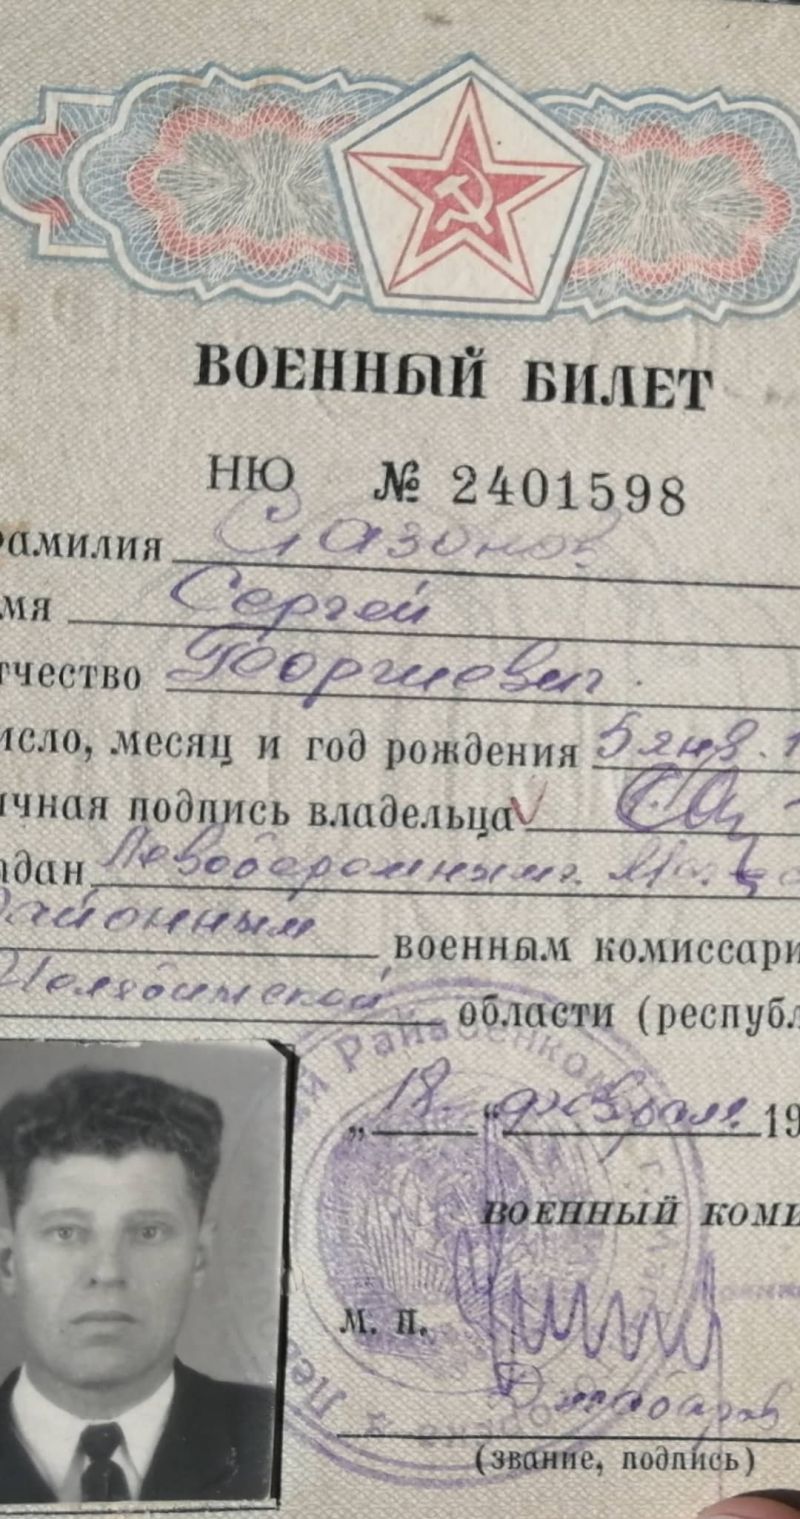 ВОЕННЫЙ БИЛЕТ
НЮ № 2401598
фамилия Сазонов
мя Сергей
тчество Георгиевич
исло, месяц и год рождения 5 янв. 1
ичная подпись владельца
дан Левобережным г.
Районным военным комиссари
Челябинской области (республ
„18“ февраля 19
ВОЕННЫЙ КОМИ
М. П.
(звание, подпись)